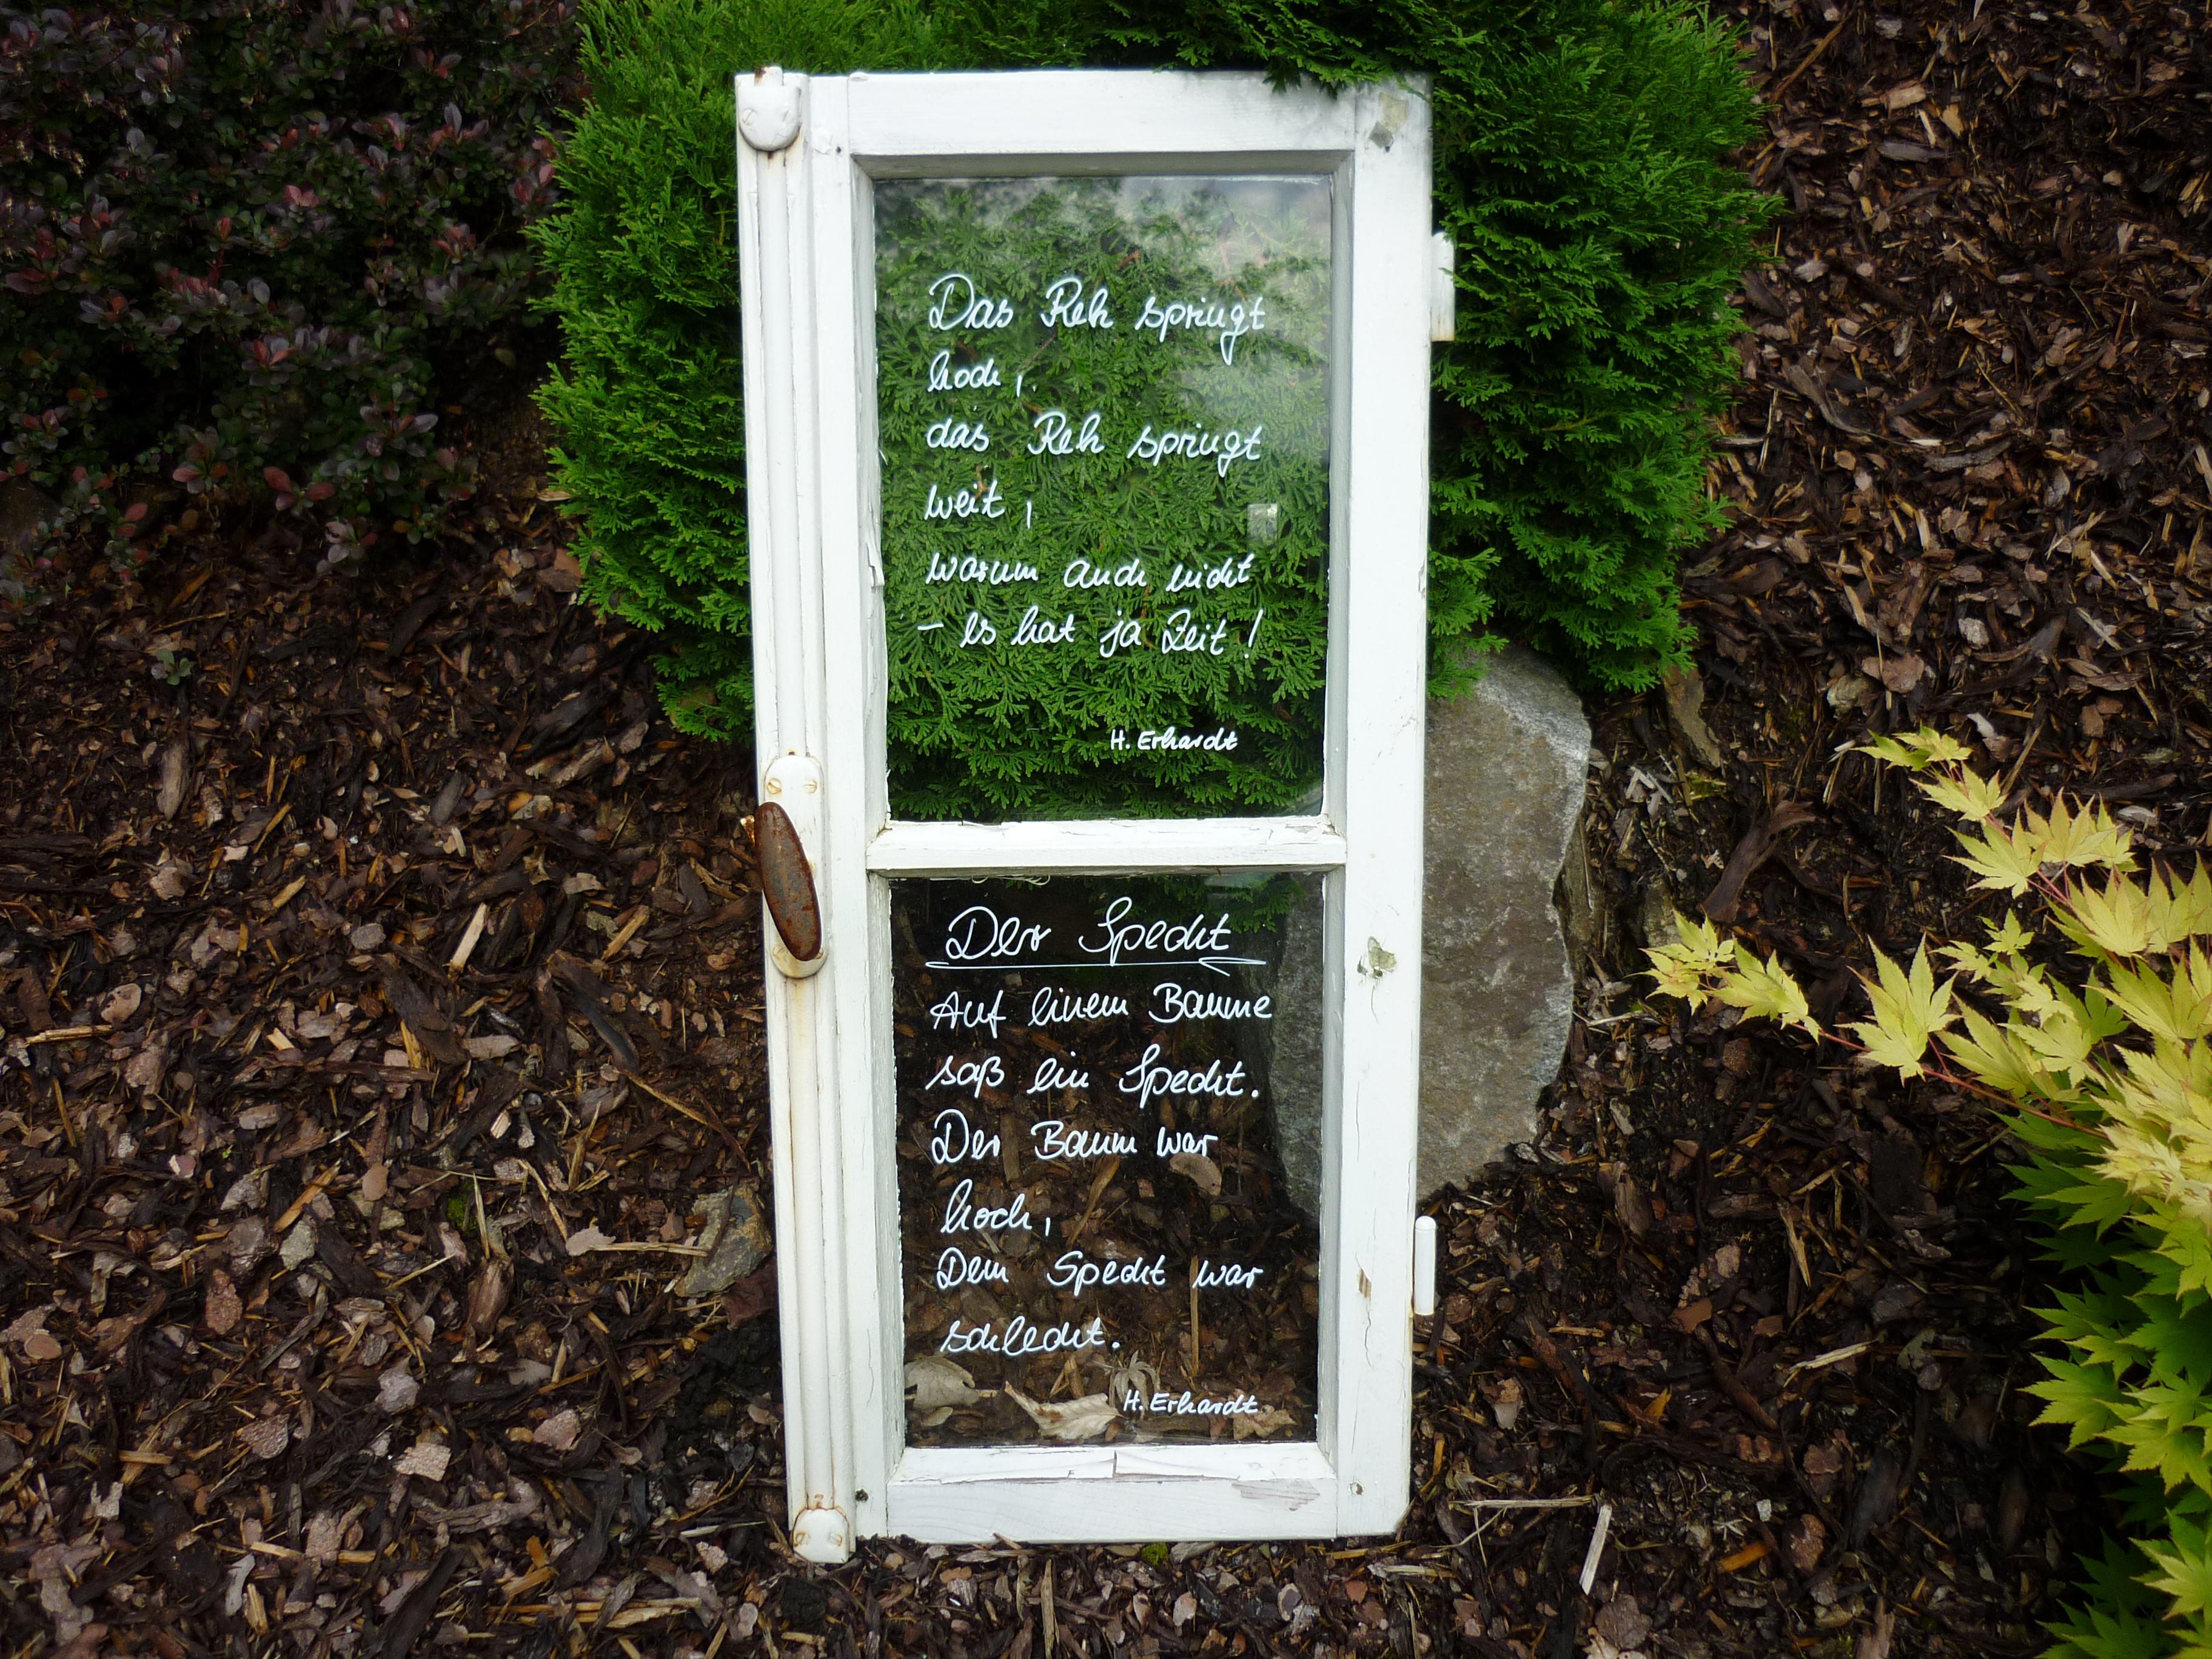 Das Reh springt
hoch,
das Reh springt
weit,
warum auch nicht
– es hat ja Zeit!
H. Erhardt
Der Specht
Auf einem Baume
saß ein Specht.
Der Baum war
hoch,
Dem Specht war
schlecht.
H. Erhardt